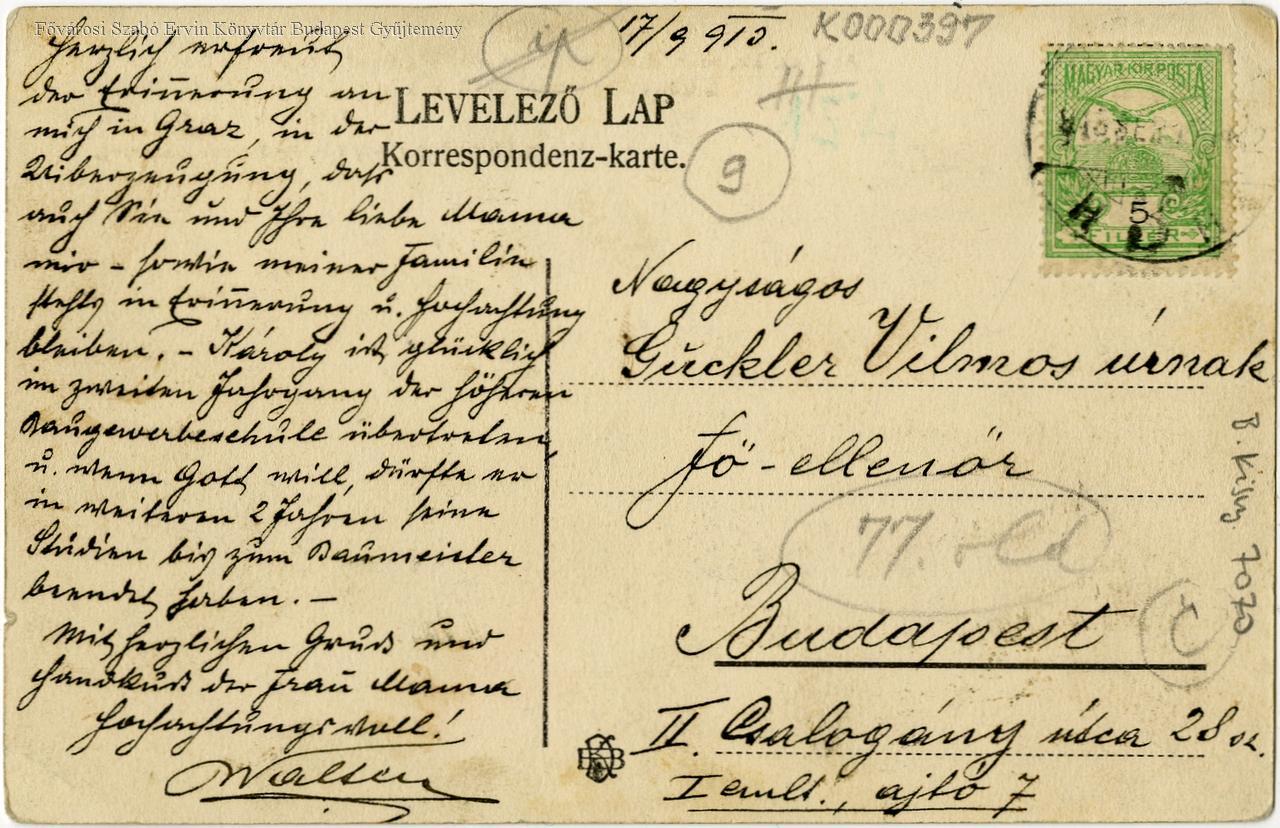 Fővárosi Szabó Ervin Könyvtár Budapest Gyűjtemény
17/9 910.
K000397
Herzlich erfreut
der Erinnerung an
mich in Graz, in der
Uiberzeugung, dass
auch Sie und Ihre liebe Mama
mir – sowie meiner Familie
stehts in Erinnerung u. Hochachtung
bleiben. – Károly ist glücklich
im zweiten Jahrgang der höheren
Baugewerbeschule übertreten,
u. wenn Gott will, dürfte er
in weiteren 2 Jahren seine
Studien bis zum Baumeister
beendet haben. –
Mit herzlichen Gruss und
Handkuss der Frau Mama
Hochachtungsvoll!
Walter
LEVELEZŐ LAP
Korrespondenz-karte.
9
MAGYAR·KIR·POSTA
5
FILLÉR
Nagyságos
Guckler Vilmos úrnak
fő-ellenőr
77. old
Budapest
II. Csalogány útca 28 sz.
I emlt., ajtó 7
7070